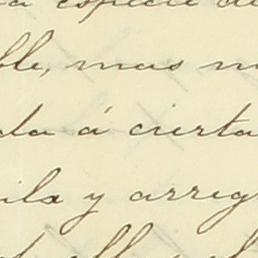 a especie de
ble, mas n
da á cierta
ila y arreg